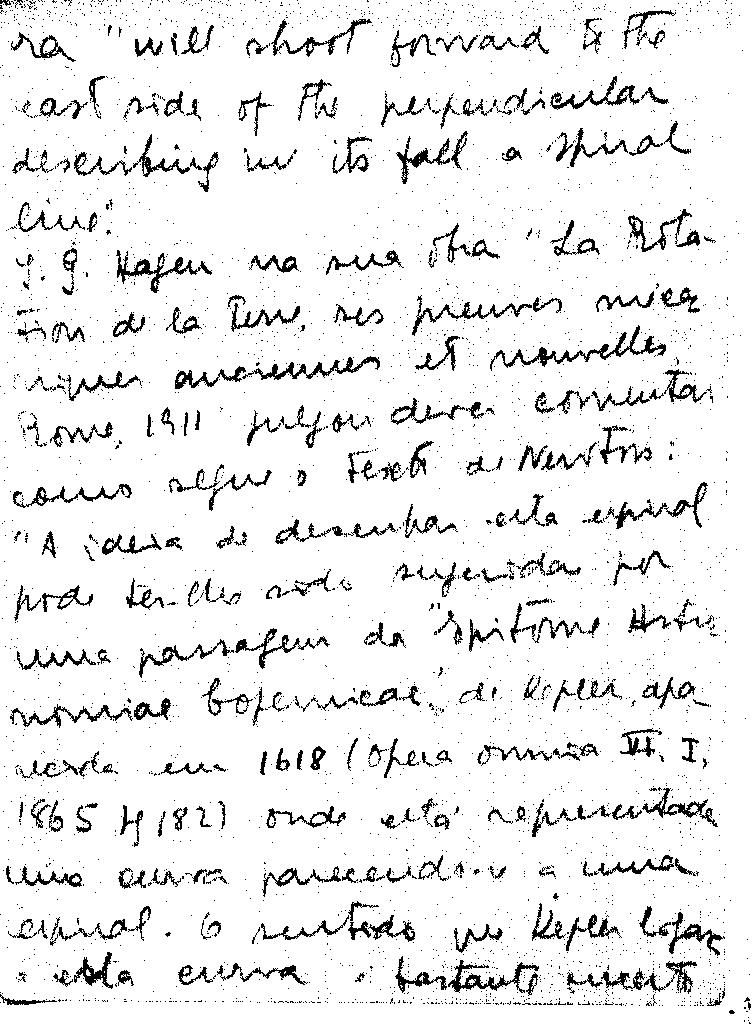 ra "will shoot forward to the
east side of the perpendicular
describing in its fall a spiral
line".
J. G. Hagen na sua obra "La Rota-
tion de la Terre, ses preuves méca
niques anciennes et nouvelles,
Rome, 1911" julgou dever comentar
como segue o texto de Newton:
"A ideia de desenhar esta espiral
pode ter-lhe sido sugerida por
uma passagem da "Epitome Astro
nomiae Copernicae", de Kepler, apa-
recida em 1618 (Opera omnia VI, I,
1865 182) onde está representada
uma curva parecendo-se a uma
espiral. O sentido que Kepler
a esta curva é bastante incerto